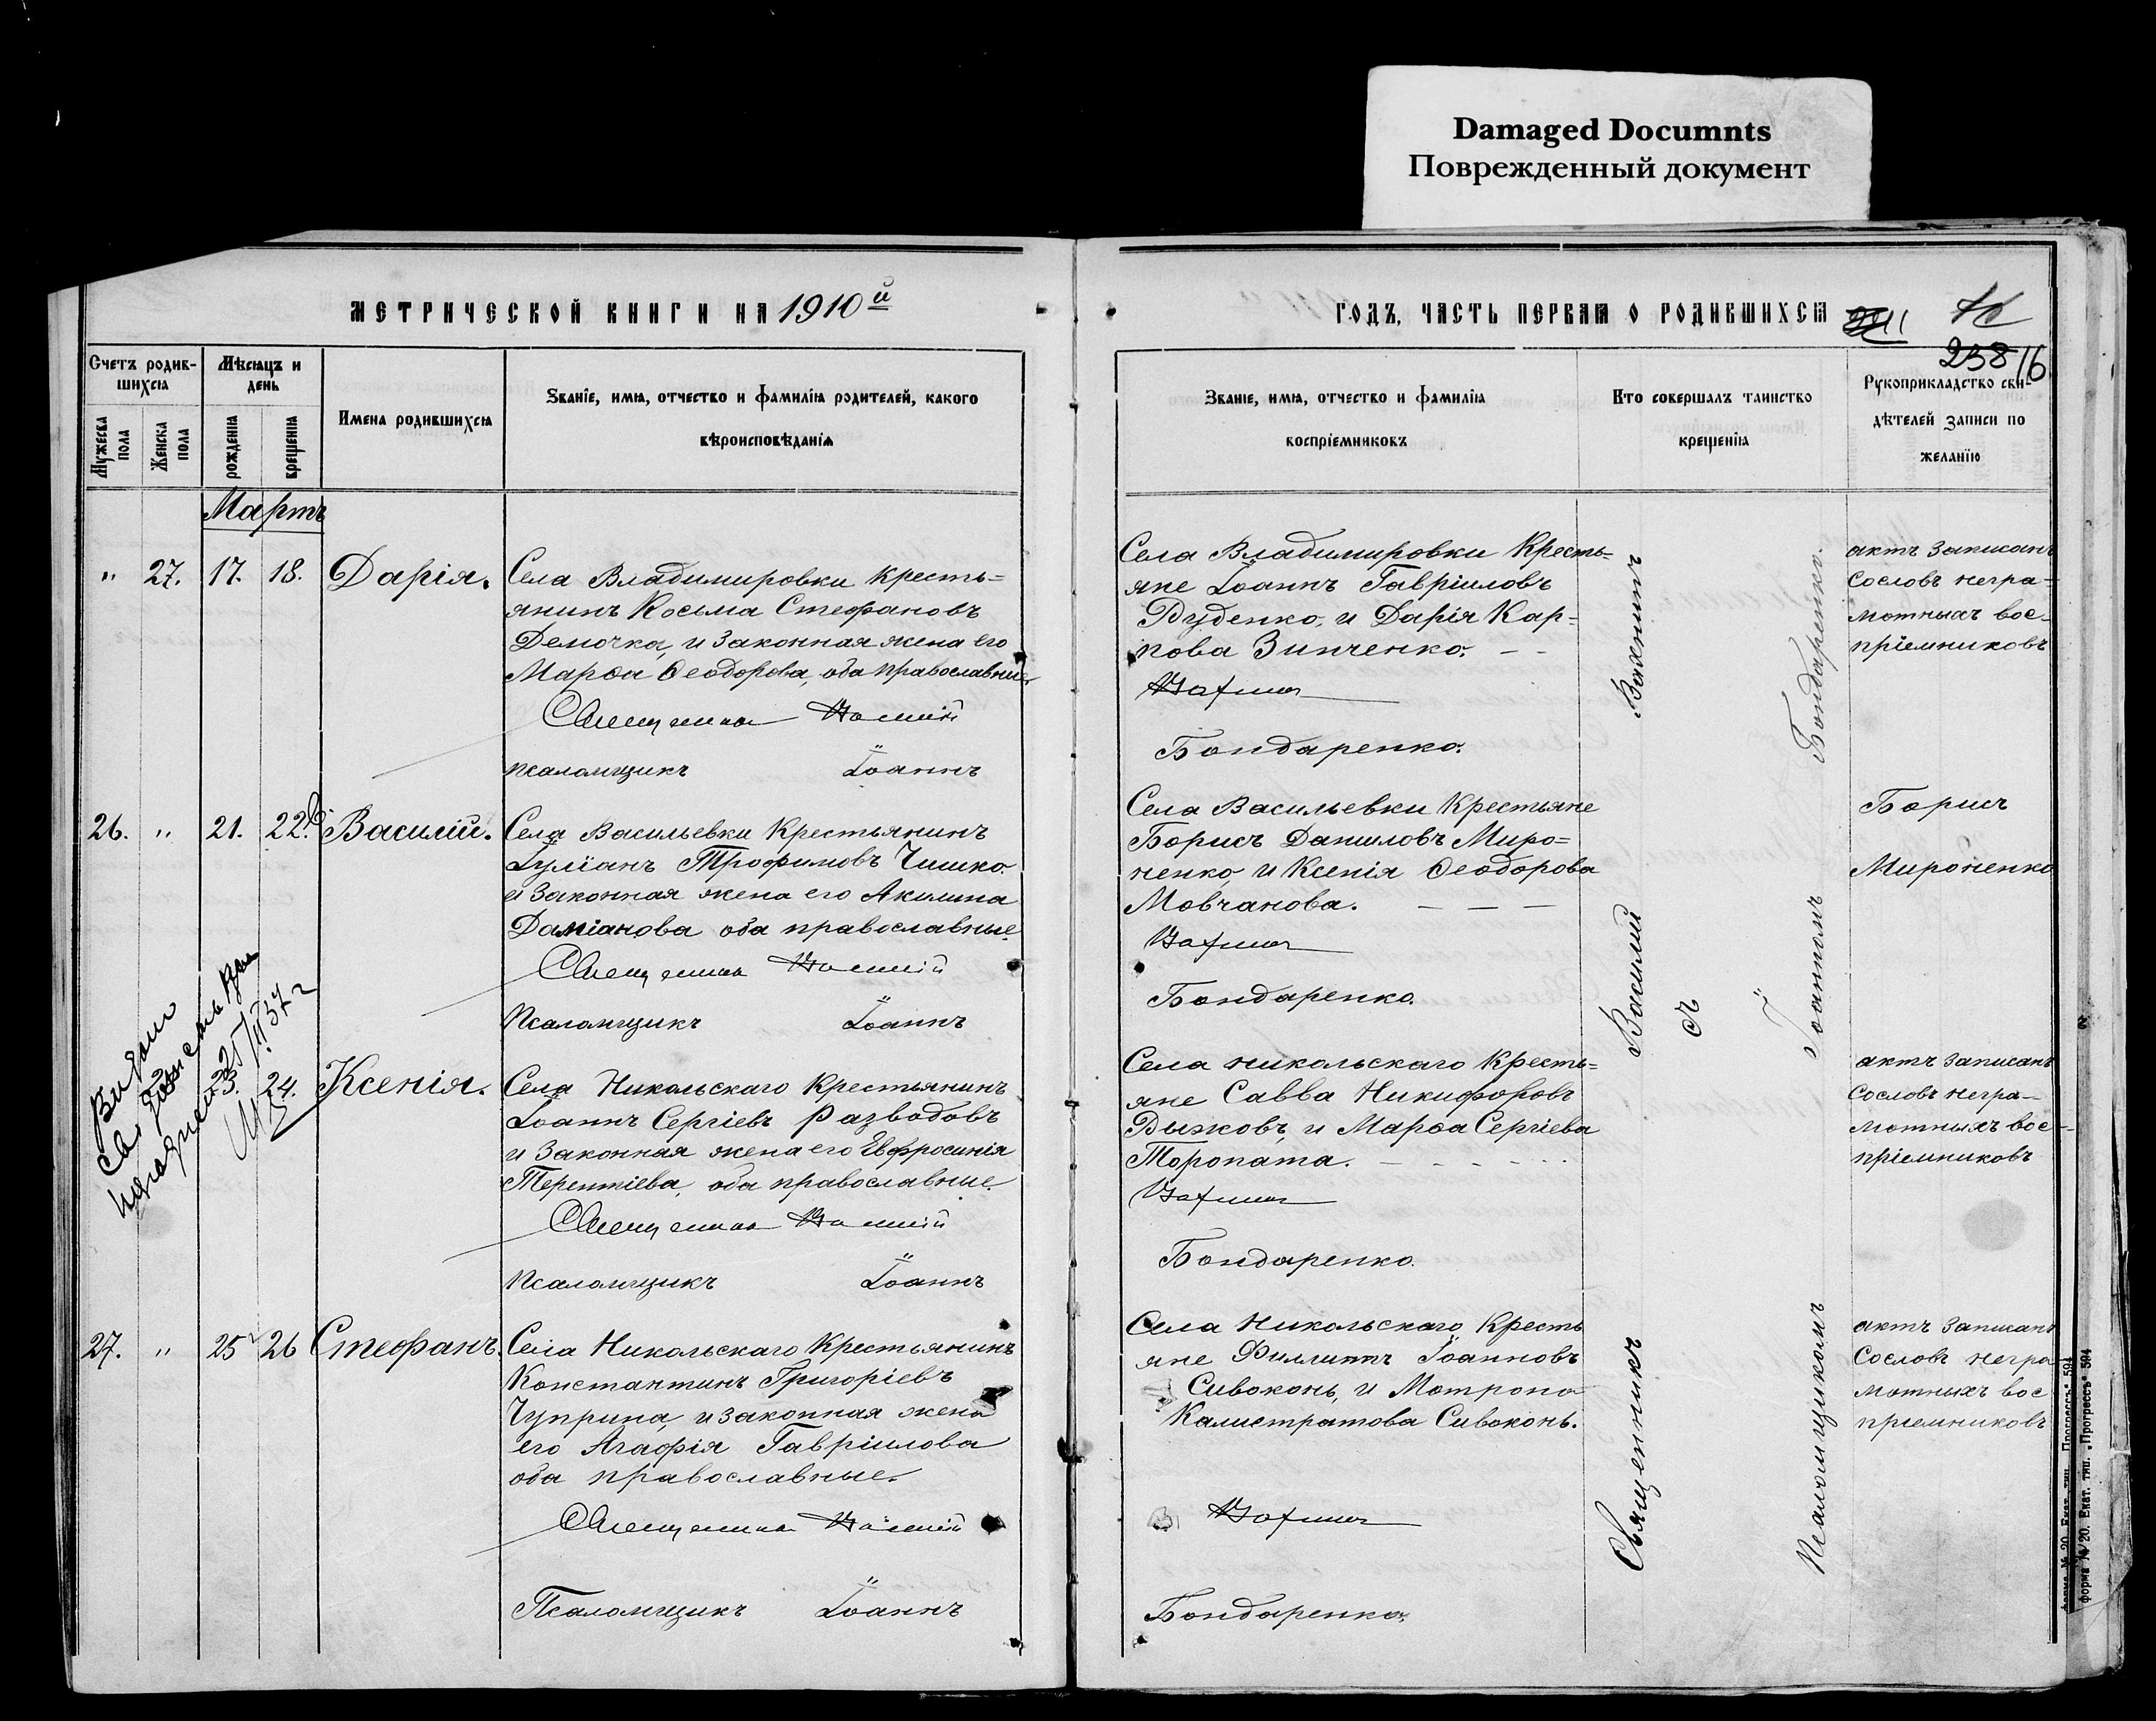 Damaged Documnts
Поврежденный документ
МЕТРИЧЕСКОЙ КНИГИ НА 1910й
Счетъ родившихся
Мѣсяцъ и день
Имена родившихся
Званіе, имя, отчество и фамилія родителей, какого
вѣроисповѣданія
Мужеска пола
Женска пола
рожденія
крещенія
Мартъ
" 27. 17. 18. Дарія.
Села Владимировки Кресть=
янинъ Косьма Стефановъ
Демочка, и законная жена его
Марѳа Ѳеодорова, оба православные
Священникъ Василій
псаломщикъ Іоаннъ
26. " 21. 22. Василій.
Села Васильевки Крестьянинъ
Іуліанъ Трофимовъ Чишко
и законная жена его Акилина
Даміанова оба православные.
Священникъ Василій
Псаломщикъ Іоаннъ
23. 24. Ксенія.
Села Никольскаго Крестьянинъ
Іоаннъ Сергіевъ Разводовъ
и законная жена его Евфросинія
Терентіева, оба православные.
Священникъ Василій
Псаломщикъ Іоаннъ
27. " 25 26 Стефанъ.
Села Никольскаго Крестьянинъ
Константинъ Григоріевъ
Чуприна, и законная жена
его Агафія Гавріилова
оба православные.
Священникъ Василій
Псаломщикъ Іоаннъ
ГОДЪ, ЧАСТЬ ПЕРВАЯ О РОДИВШИХСЯ
238
16
Званіе, имя, отчество и фамилія
воспріемниковъ
Кто совершалъ таинство
крещенія
Рукоприкладство сви-
дѣтелей записи по
желанію
Села Владимировки Кресть=
яне Іоаннъ Гавріиловъ
Руденко, и Дарія Кар=
пова Зинченко.
Вахнинъ
Бондаренко.
Села Васильевки Крестьяне
Борисъ Даниловъ Миро=
ненко, и Ксенія Ѳеодорова
Мовчанова.
Вахнинъ
Бондаренко.
Села Никольскаго Кресть=
яне Савва Никифоровъ
Рыжковъ, и Марѳа Сергіева
Торопата.
Вахнинъ
Бондаренко.
Села Никольскаго Кресть
яне Филиппъ Іоанновъ
Сивоконь, и Мотрона
Калистратова Сивоконь.
Вахнинъ
Бондаренко.
Священникъ Василій Вахнинъ
съ
Псаломщикомъ Іоанномъ Бондаренко.
актъ записанъ
со словъ негра=
мотныхъ вос-
пріемниковъ
Борисъ
Мироненко
актъ записанъ
со словъ негра-
мотныхъ вос-
пріемниковъ
актъ записанъ
со словъ негра
мотныхъ вос
пріемниковъ
форма № 20. Екат. тип. „Прогрессъ“ 594